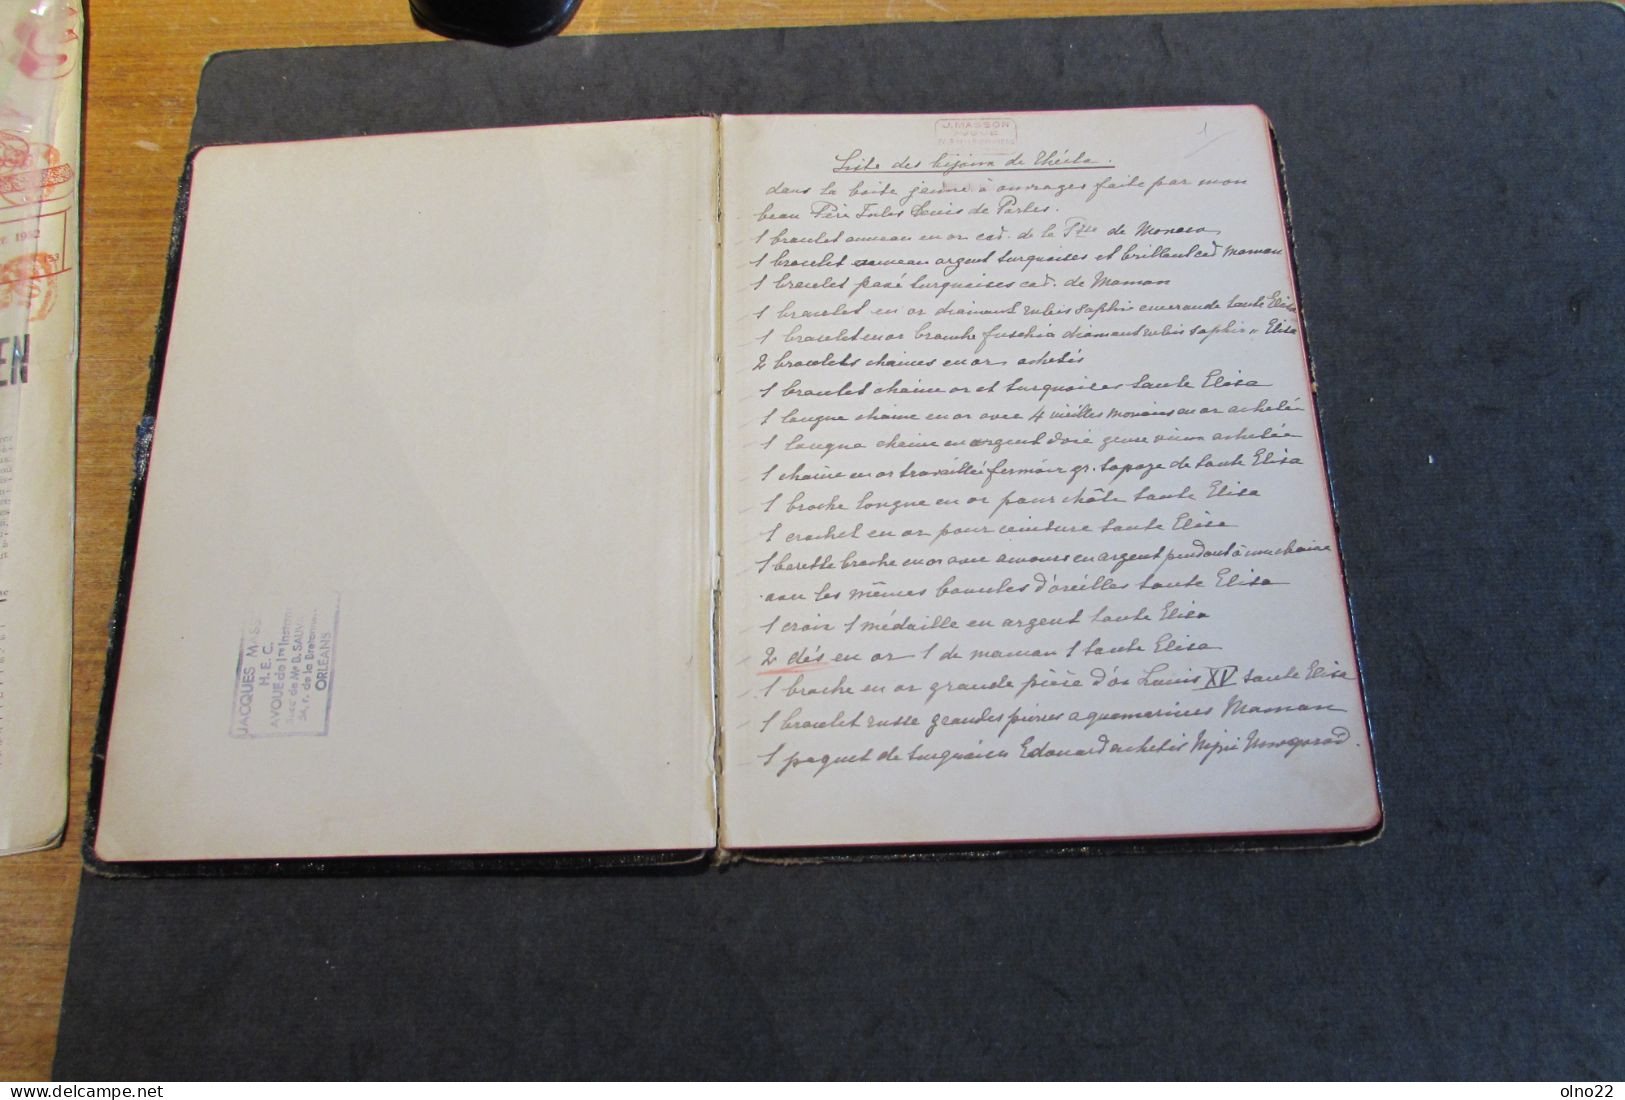 J. MASSON
AVOUÉ
1
Liste des bijoux de Thécla.
dans la boite jaune à ouvrages faite par mon
beau Père Jules Louis de Perles.
1 bracelet anneau en or cad. de la Psse de Monaco
1 bracelet anneau argent turquoises et brillant cad Maman
1 bracelet pavé turquoises cad. de Maman
1 bracelet en or diamant rubis saphir emeraude tante Elisa
1 bracelet en or branche fuschia diamant rubis saphir " Elisa
2 bracelets chaines en or achetés
1 bracelet chaine or et turquoises tante Elisa
1 longue chaine en or avec 4 vieilles monaies en or achetée
1 longue chaine en argent doré genre vieux achetée
1 chaîne en or travaillée fermoir gr. topaze de tante Elisa
1 broche longue en or pour châle tante Elisa
1 crochet en or pour ceinture tante Elisa
1 barette broche en or avec amours en argent pendant à une chaine
avec les mêmes boucles d'oreilles tante Elisa
1 croix 1 médaille en argent tante Elisa
2 dés en or 1 de maman 1 tante Elisa
1 broche en or grande pièce d'or Louis XV tante Elisa
1 bracelet russe grandes pierres aquemarines Maman
1 paquet de turquoises Edouard achetés Nijni Novgorod.
JACQUES MASS
H. E. C.
AVOUÉ de 1re Instan
Succ de Me D. SAUV
34, r. de la Bretonn
ORLÉANS
1952
EN
olno22